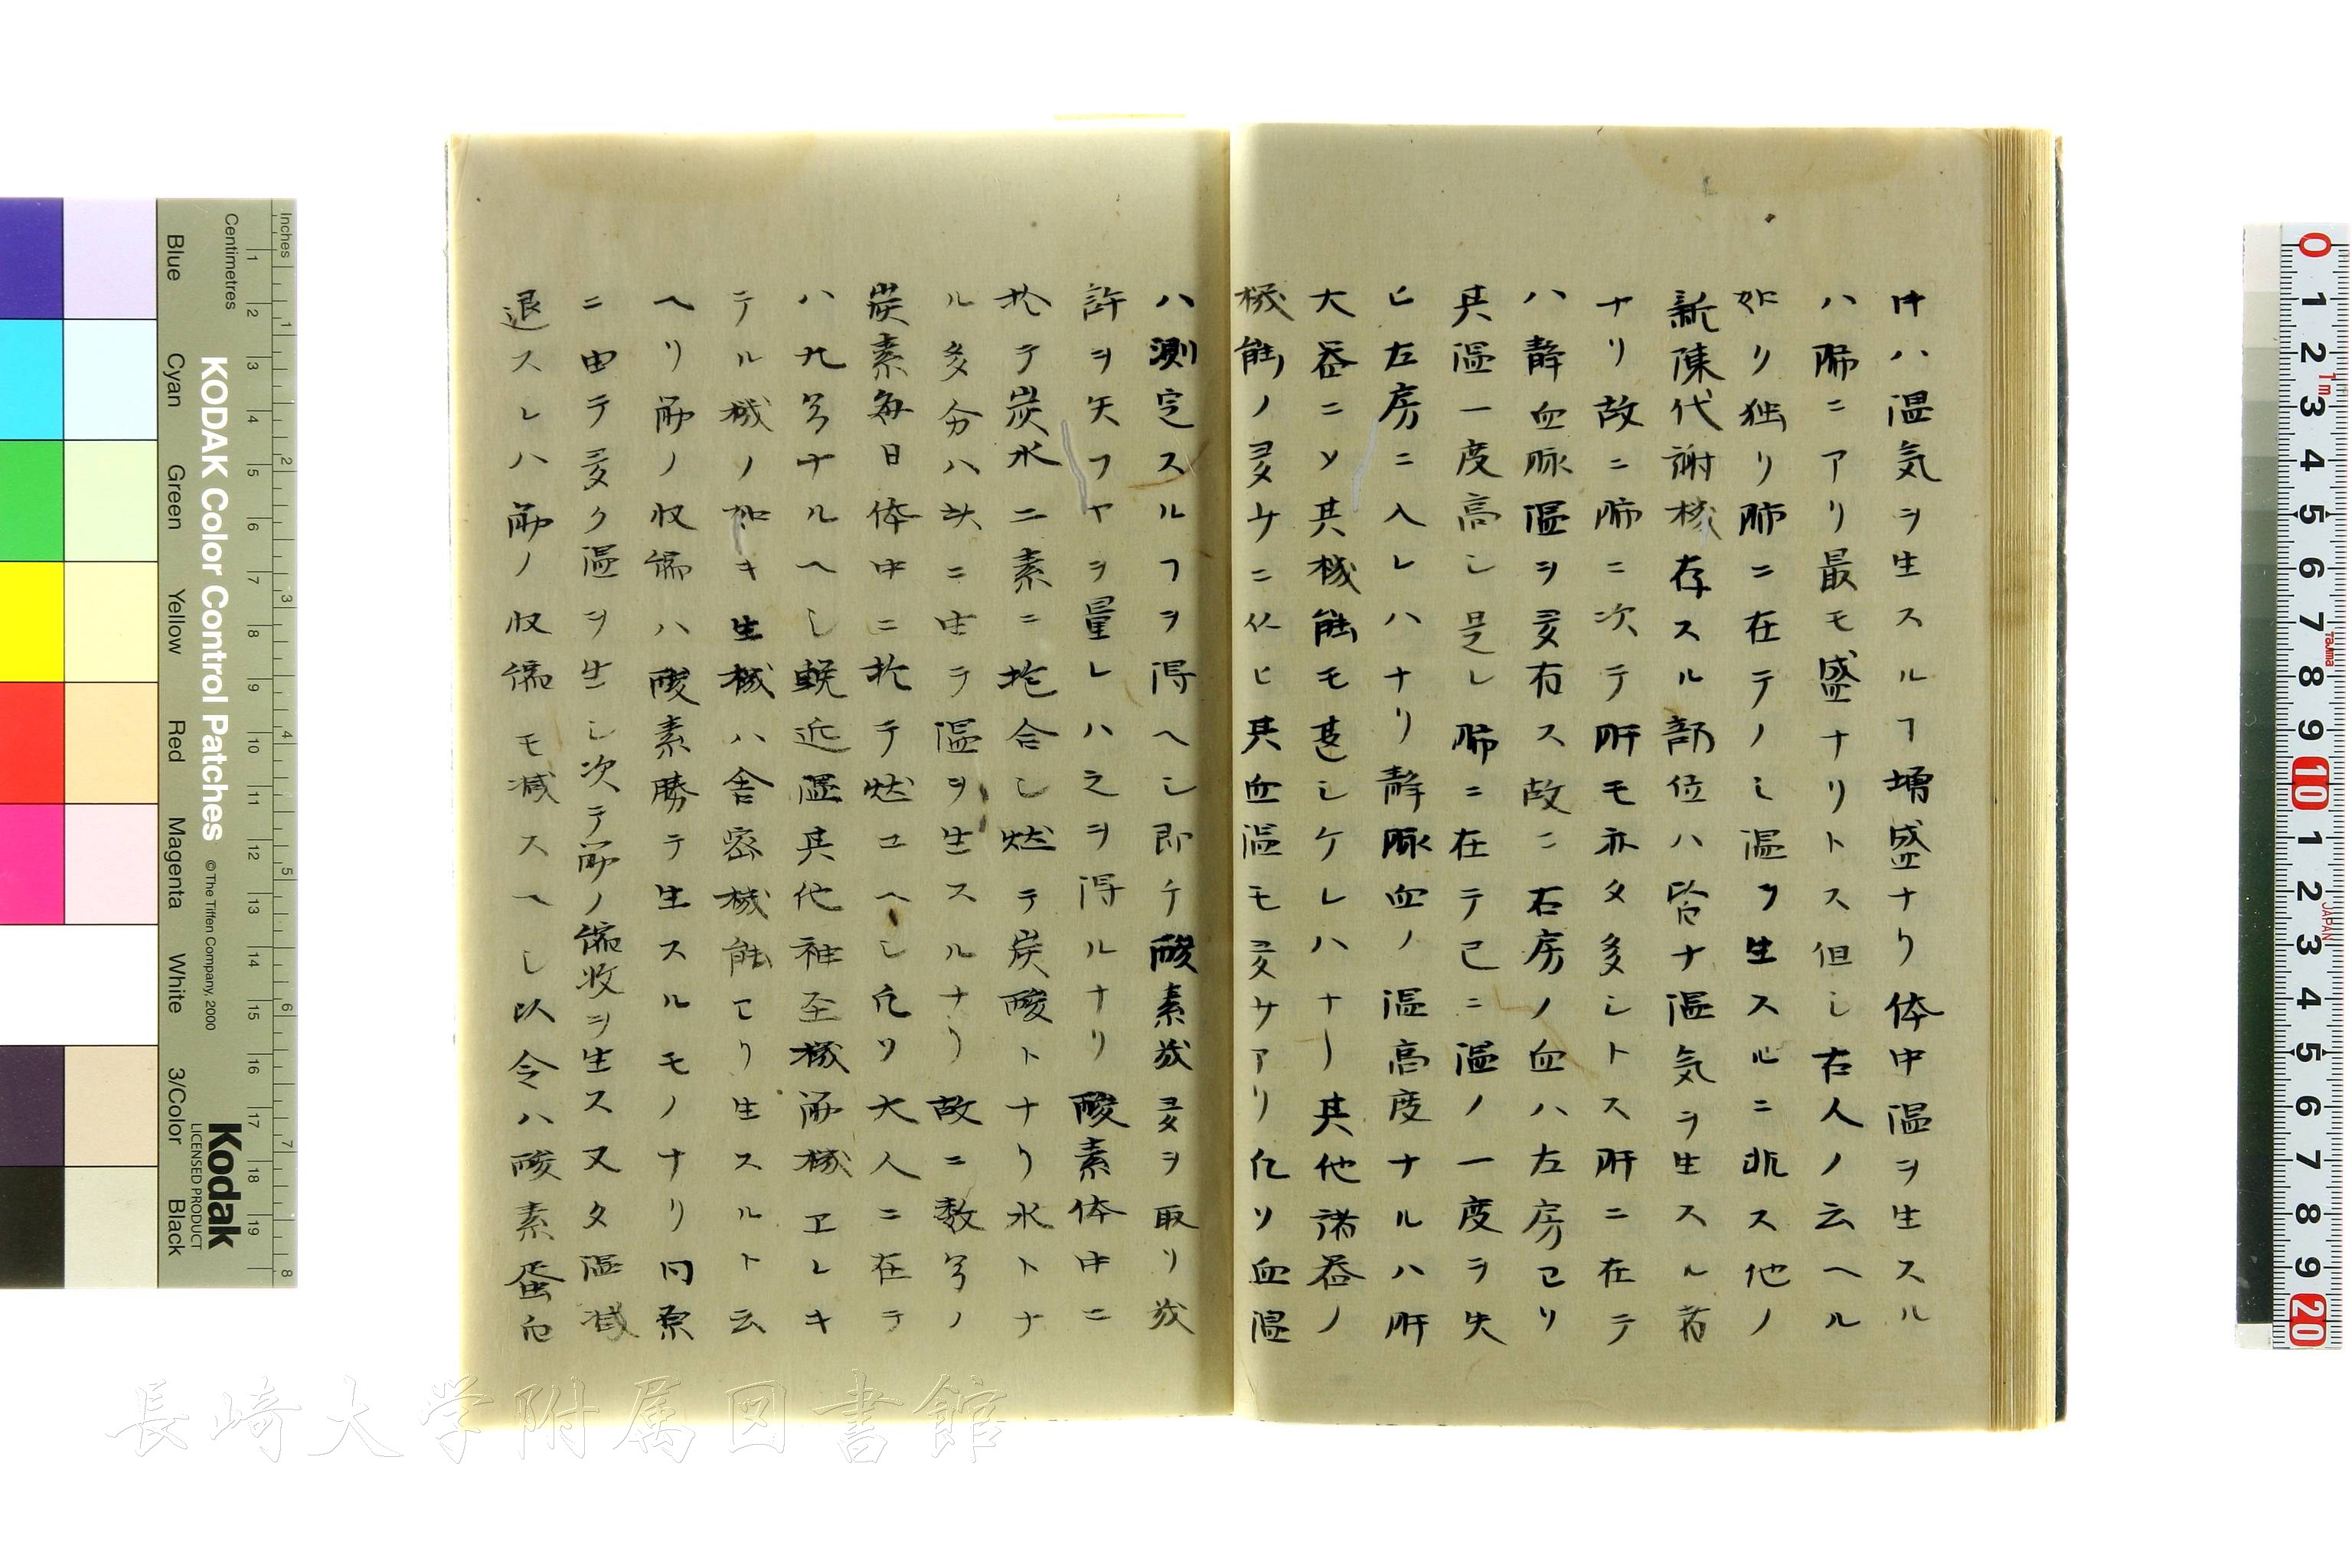 牛ハ温気ヲ生スルヿ増盛ナリ体中温ヲ生スル
ハ肺ニアリ最モ盛ナリトス但シ右人ノ云ヘル
如リ独リ肺ニ在テノミ温ヲ生スルニ非ス他ノ
新陳代謝機存スル部位ハ皆ナ温気ヲ生スル者
ナリ故ニ肺ニ次テ肝モ亦タ多シトス肝ニ在テ
ハ静血脈温ヲ夛有ス故ニ右房ノ血ハ左房ヨリ
其温一度高シ是レ肺ニ在テ已ニ温ノ一度ヲ失
ヒ左房ニ入レハナリ静脈血ノ温高度ナルハ肝
大器ニソ其機能モ甚シケレハナリ其他諸器ノ
機能ノ夛サニ従ヒ其血温モ夛サアリ凡ソ血温
ハ測定スルヿヲ得ヘシ即チ酸素幾夛ヲ取リ幾
許ヲ失フヤヲ量レハ之ヲ得ルナリ酸素体中ニ
於テ炭水二素ニ抱合シ燃テ炭酸トナリ水トナ
ル多分ハ此ニ由テ温ヲ生スルナリ故ニ数多ノ
炭素毎日体中ニ於テ燃ユヘシ凡ソ大人ニ在テ
ハ九多ナルヘシ輓近温其他神至機筋機ヱレキ
テル機ノ如キ生機ハ舎密機能ヨリ生スルト云
ヘリ筋ノ収縮ハ酸素勝テ生スルモノナリ同素
ニ由テ夛ク温ヲ生シ次テ筋ノ縮收ヲ生ス又タ温減
退スレハ筋ノ收縮モ減スヘシ以令ハ酸素蛋白
長崎大学附属図書館
Inches
Centimetres
Blue
Cyan
Green
Yellow
Red
Magenta
White
3/Color
Black
KODAK Color Control Patches
© The Tiffen Company, 2000
Kodak
LICENSED PRODUCT
1m
Tajima
JAPAN